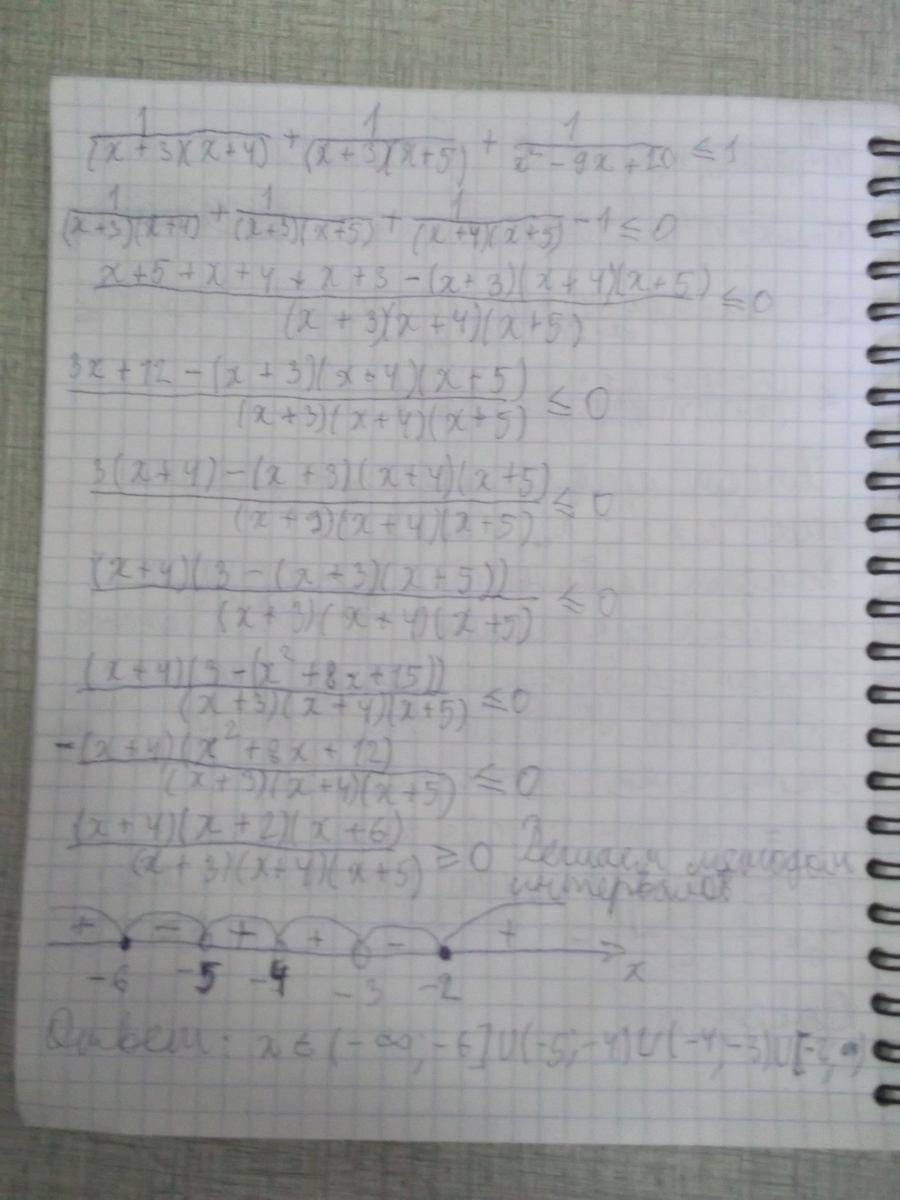 1/((x+3)(x+4)) + 1/((x+3)(x+5)) + 1/(x²-9x+20) ≤ 1
1/((x+3)(x+4)) + 1/((x+3)(x+5)) + 1/((x+4)(x+5)) - 1 ≤ 0
(x+5+x+4+x+3-(x+3)(x+4)(x+5))/((x+3)(x+4)(x+5)) ≤ 0
(3x+12-(x+3)(x+4)(x+5))/((x+3)(x+4)(x+5)) ≤ 0
(3(x+4)-(x+3)(x+4)(x+5))/((x+3)(x+4)(x+5)) ≤ 0
((x+4)(3-(x+3)(x+5)))/((x+3)(x+4)(x+5)) ≤ 0
((x+4)(3-(x²+8x+15)))/((x+3)(x+4)(x+5)) ≤ 0
-(x+4)(x²+8x+12)/((x+3)(x+4)(x+5)) ≤ 0
(x+4)(x+2)(x+6)/((x+3)(x+4)(x+5)) ≥ 0 Решаем методом
интервалов
+ - + + - +
-6 -5 -4 -3 -2 x
Ответ: x ∈ (-∞; -6]∪(-5; -4)∪(-4; -3)∪[-2; ∞)